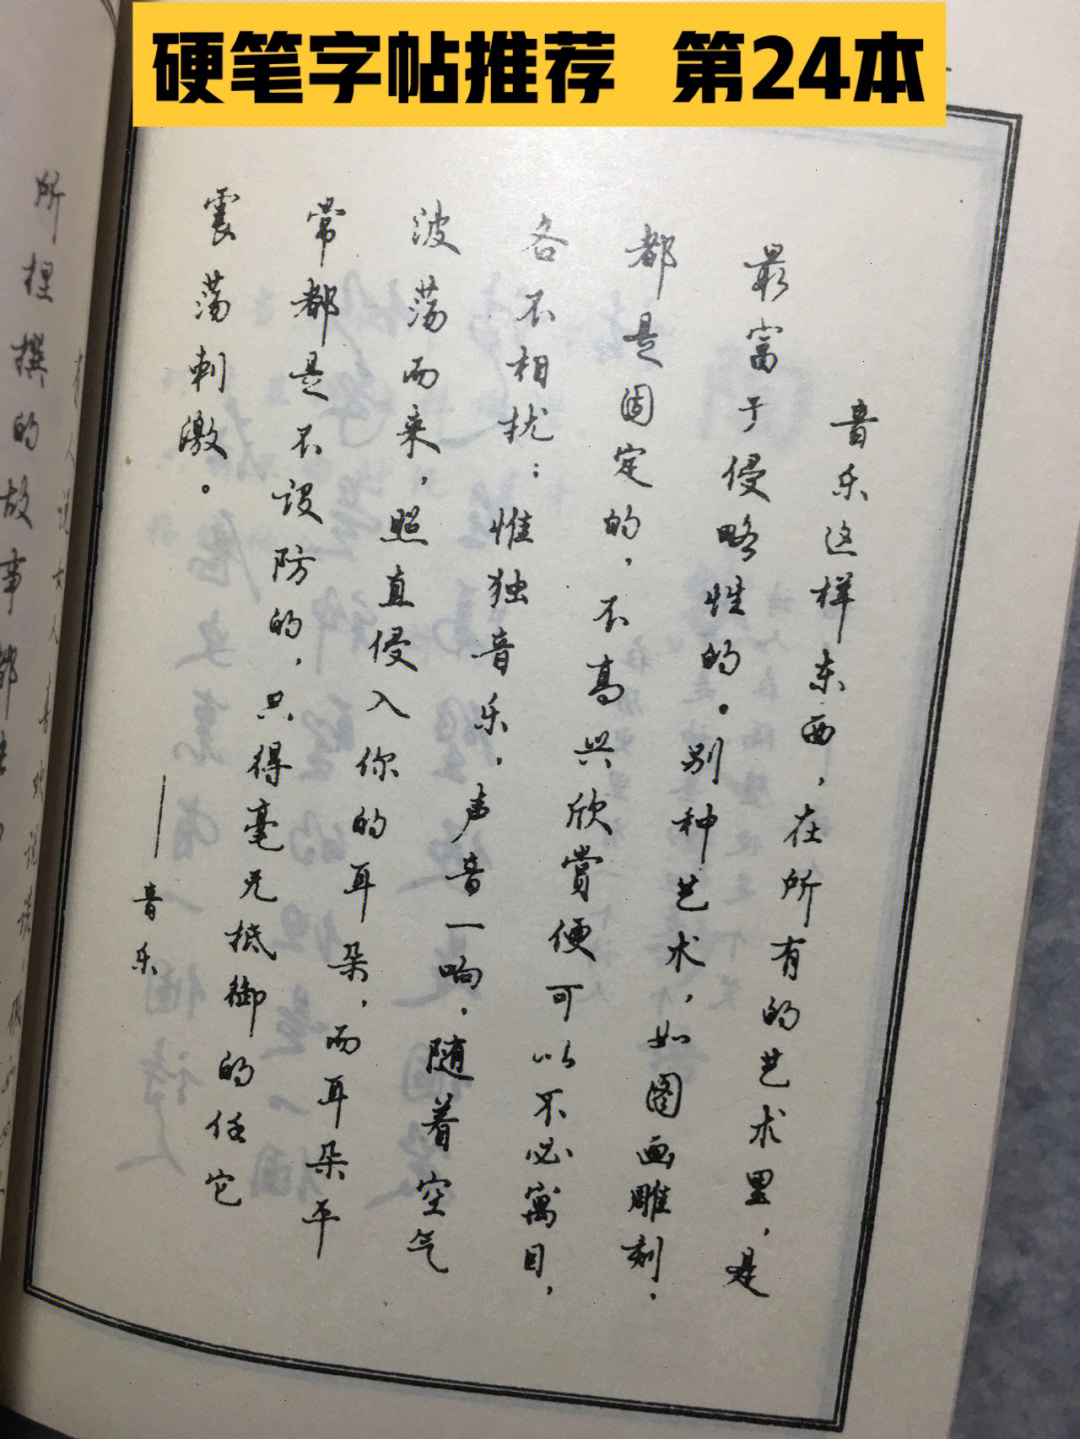 硬笔字帖推荐 第24本
音乐这样东西，在所有的艺术里，是
最富于侵略性的。别种艺术，如图画雕刻，
都是固定的，不高兴欣赏便可以不必寓目，
各不相扰；惟独音乐，声音一响，随着空气
波荡而来，照直侵入你的耳朵，而耳朵平
常都是不设防的，只得毫无抵御的任它
震荡刺激。
——音乐
所捏撰的故事都